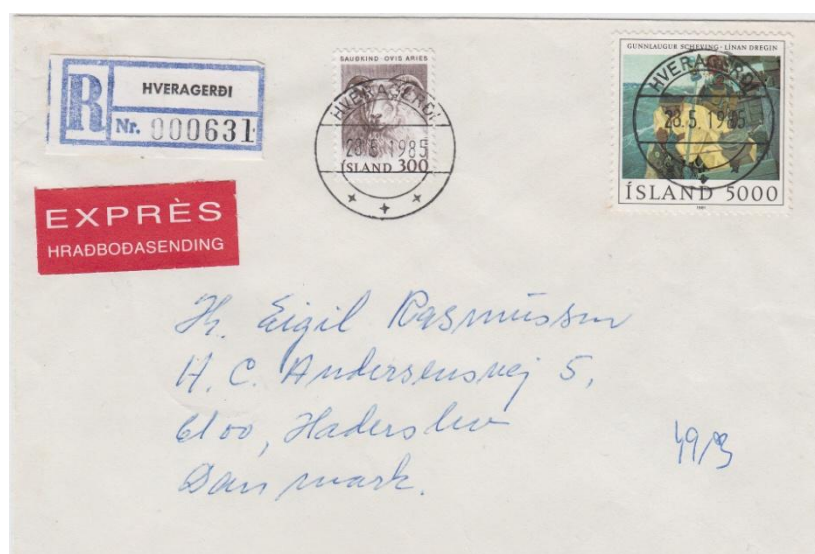 HVERAGERÐI
R Nr. 000631
SAUÐKIND · OVIS ARIES
HVERAGERÐI
28.5.1985
ÍSLAND 300
GUNNLAUGUR SCHEVING · LÍNAN DREGIN
HVERAGERÐI
28.5.1985
ÍSLAND 5000
1981
EXPRÈS
HRAÐBOÐASENDING
Hr. Eigil Rasmussen
H. C. Andersensvej 5,
6100, Haderslev
Danmark.